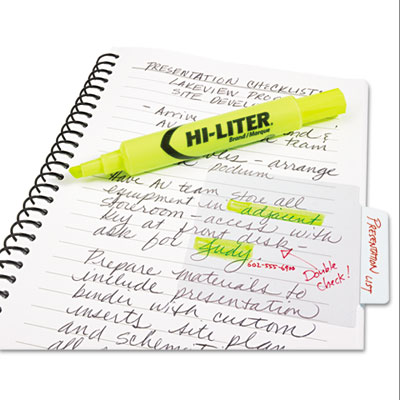 PRESENTATION CHECKLIST
LAKEVIEW
SITE
- Arrive
AV team
- arrange
podium
- Have AV team store all
equipment in adjacent
storeroom - access with
key at front desk -
ask for Judy.
602-555-6900
Double
check!
Prepare materials to
include presentation
binder with custom
inserts, site plan
and
HI-LITER
Brand/Marque
PRESENTATION LIST